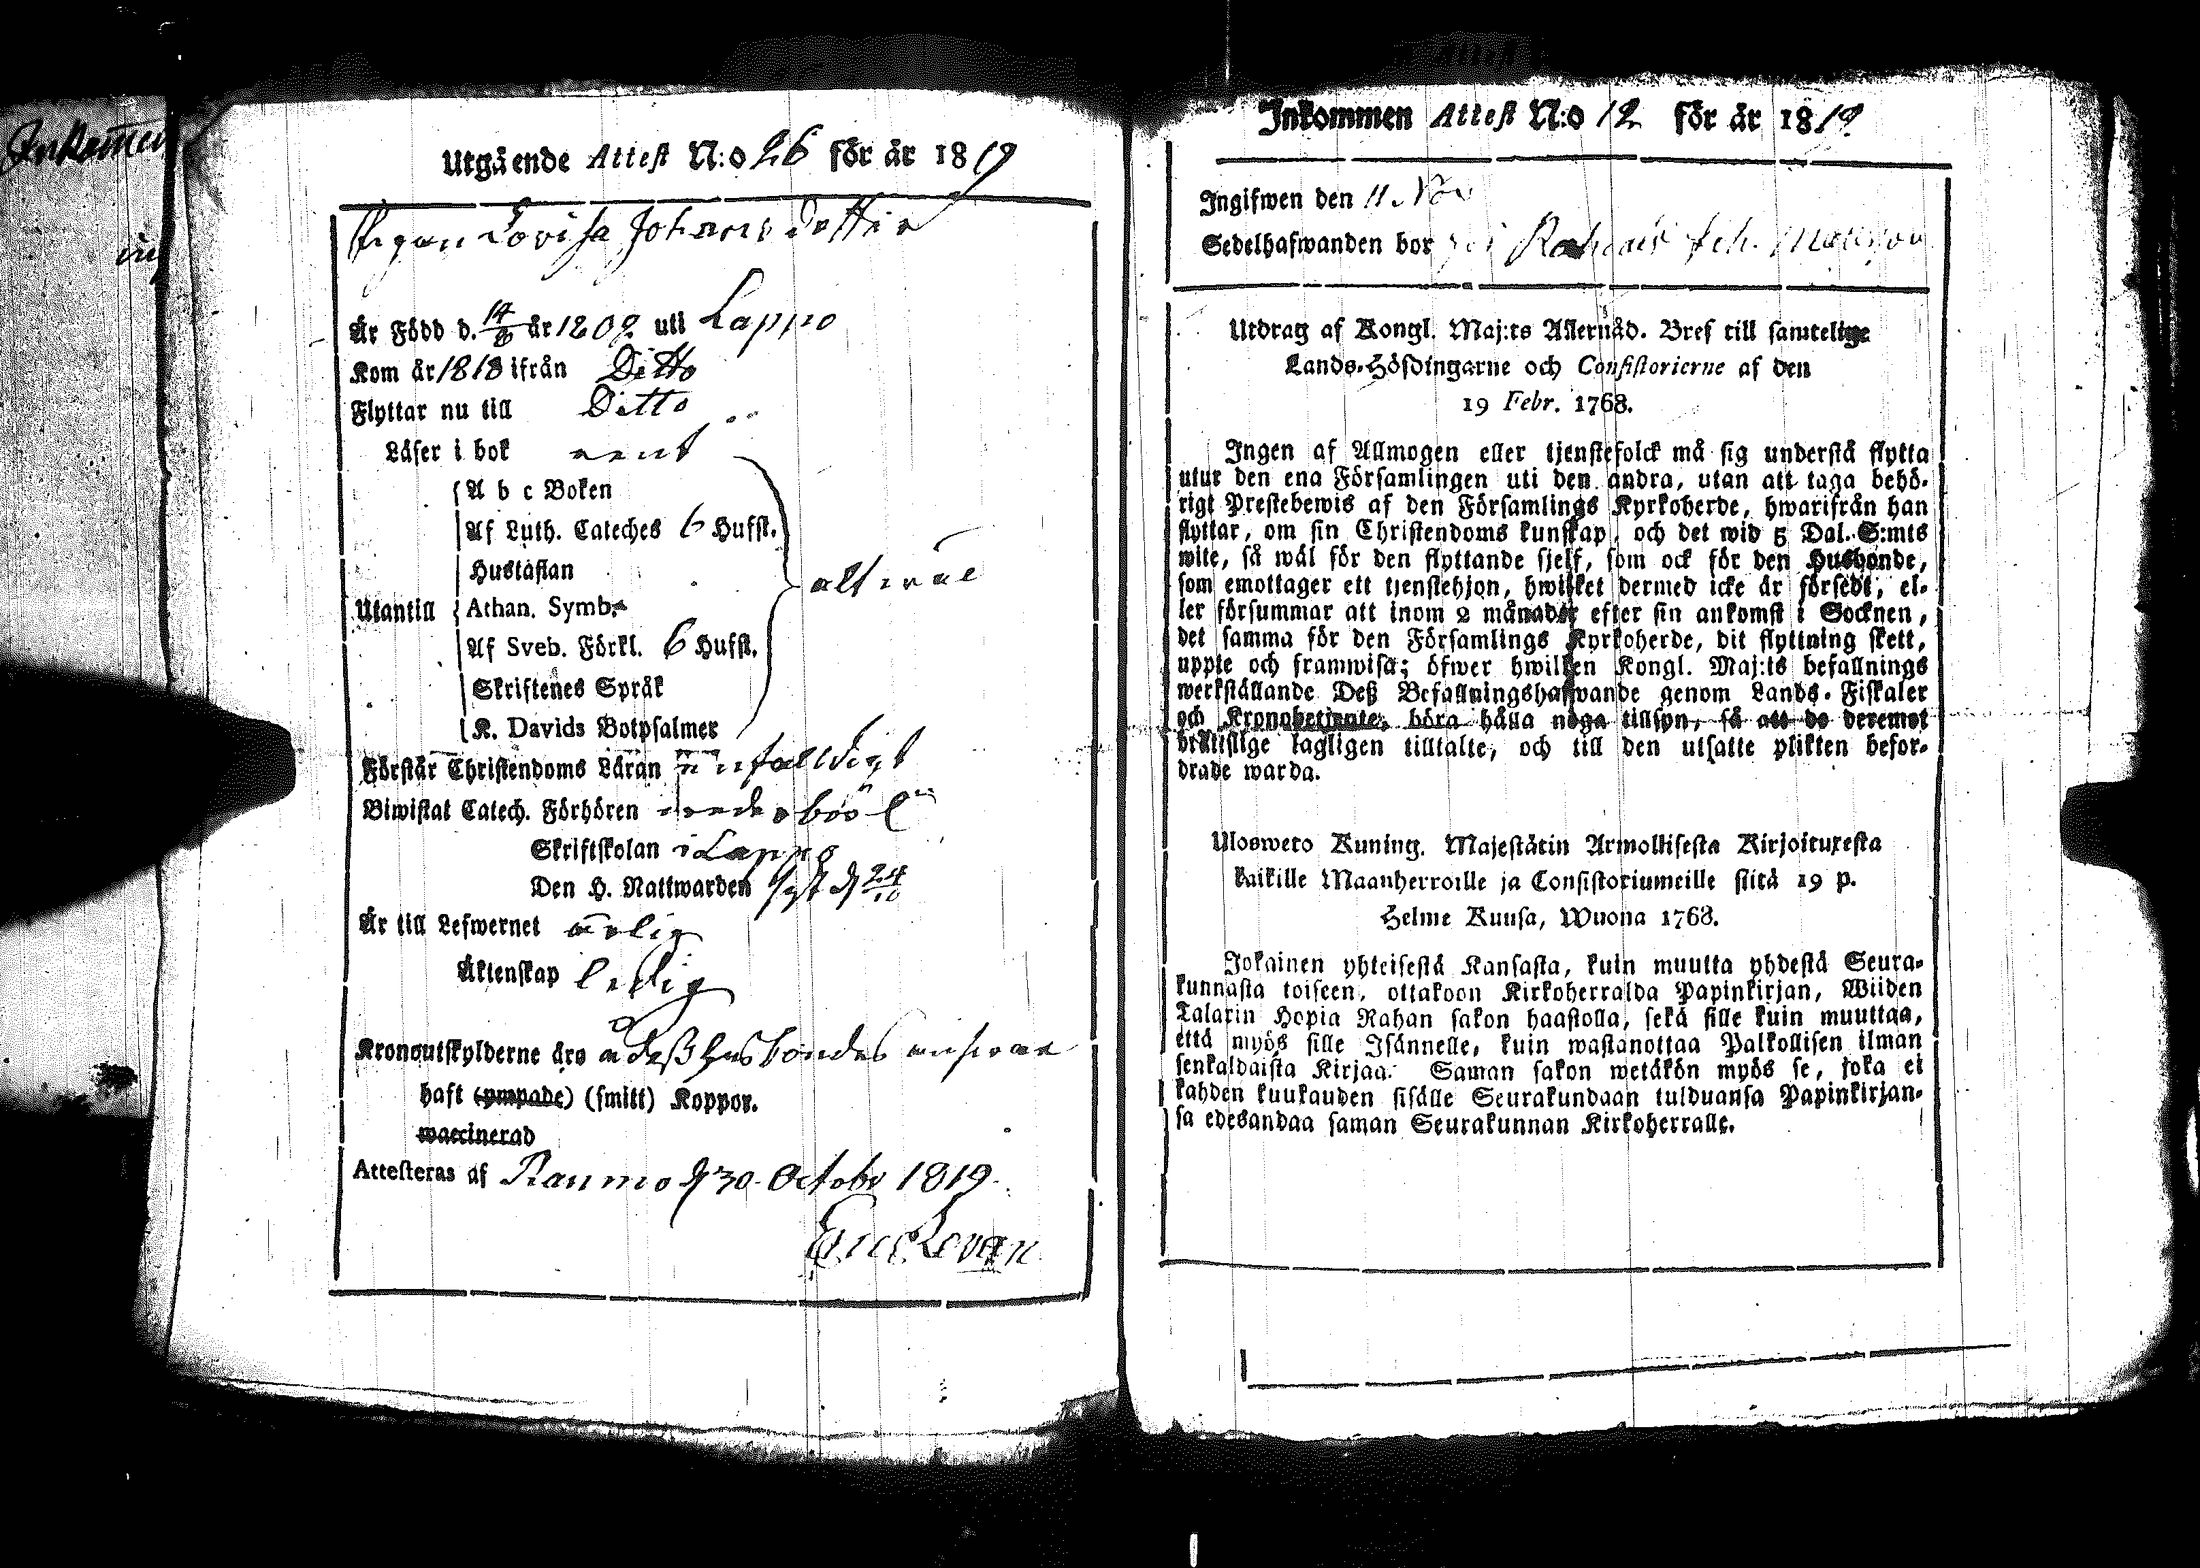 Inkommen
Utgående Attest N:o 26 för år 1819
Pigan Lovisa Johansdotter
Är Född d. 14/8 år 1802 uti Lappo
Kom år 1818 ifrån Ditto
Flyttar nu till Ditto
Läser i bok rent
A b c Boken
Af Luth. Cateches 6 Hufst.
Hustaflan
alt wäl
Utantill Athan. Symb.
Af Sveb. Förkl. 6 Hufst.
Skriftenes Språk
K. Davids Botpsalmer
Förstår Christendoms Läran enfaldigt
Biwistat Catech. Förhören
Skriftskolan i Lappo
Den H. Nattwarden sist d 24/10
Är till Lefwernet ärlig
Äktenskap ledig
Kronoutskylderne äro å deß husbondes answar
haft (ympade) (smitt) Koppor.
waccinerad
Attesteras af Raumo d 30 Octobr 1819.
Eric Levan
Inkommen Attest N:o 12 för år 1819
Ingifwen den 11 Nov
Sedelhafwanden bor Joh. Matsson
Utdrag af Kongl. Maj:ts Allernåd. Bref till samtelige
Lands-Höfdingarne och Consistorierne af den
19 Febr. 1768.
Ingen af Allmogen eller tjenstefolck må sig understå flytta
utur den ena Församlingen uti den andra, utan att taga behö-
rigt Prestebewis af den Församlings Kyrkoherde, hwarifrån han
flyttar, om sin Christendoms kunskap, och det wid 5 Dal. S:mts
wite, så wäl för den flyttande sjelf, som ock för den Husbonde,
som emottager ett tjenstehjon, hwilket dermed icke är försedt, el-
ler försummar att inom 2 månader efter sin ankomst i Socknen,
det samma för den Församlings Kyrkoherde, dit flyttning skett,
uppte och framwisa; öfwer hwilken Kongl. Maj:ts befallnings
werkställande Deß Befallningshafwande genom Lands-Fiskaler
och Kronobetjente, böra hålla noga tillsyn, så att de deremot
bråttslige lagligen tilltalte, och till den utsatte plikten befor-
drade warda.
Ulosweto Kuning. Majestätin Armollisesta Kirjoituxesta
kaikille Maanherroille ja Consistoriumeille siitä 19 p.
Helme Kuusa, Wuona 1768.
Jokainen yhteisestä Kansasta, kuin muutta yhdestä Seura-
kunnasta toiseen, ottakoon Kirkoherralda Papinkirjan, Wiiden
Talarin Hopia Rahan sakon haastolla, sekä sille kuin muuttaa,
että myös sille Isännelle, kuin wastanottaa Palkollisen ilman
senkaldaista Kirjaa. Saman sakon wetäkön myös se, joka ei
kahden kuukauden sisälle Seurakundaan tulduansa Papinkirjan-
sa edesandaa saman Seurakunnan Kirkoherralle.